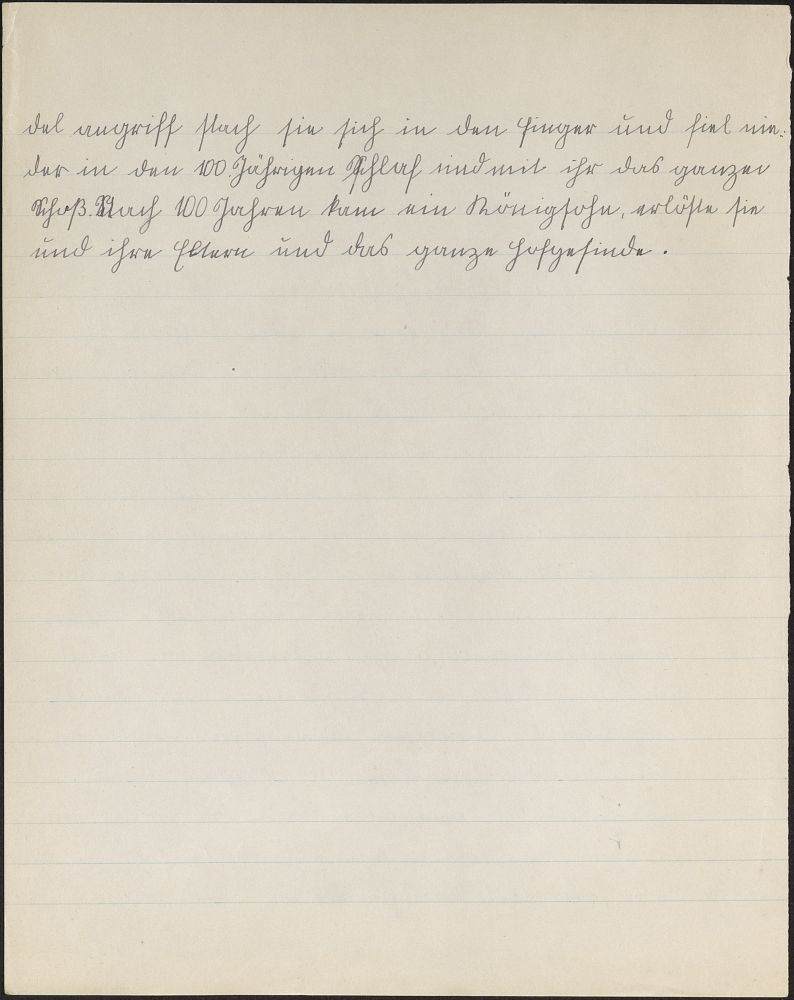 del angriff stach sie sich in den Finger und fiel nie-
der in den 100 Jährigen Schlaf und mit ihr das ganzen
Schoß. Nach 100 Jahren kam ein Königsohn, erlöste sie
und ihre Eltern und das ganze Hofgesinde.